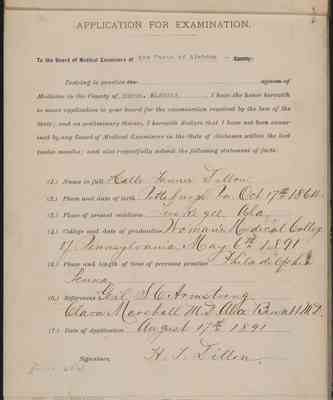 APPLICATION FOR EXAMINATION.
To the Board of Medical Examiners of the State of Alabama County:
Desiring to practice the system of
Medicine in the County of Macon, Alabama, I have the honor herewith
to make application to your board for the examination required by the law of the
State; and as preliminary thereto, I herewith declare that I have not been exam-
ined by any Board of Medical Examiners in the State of Alabama within the last
twelve months; and also respectfully submit the following statement of facts:
(1.) Name in full, Halle Tanner Dillon
(2.) Place and date of birth Pittsburgh Pa Oct 17th 1864
(3.) Place of present residence Tuskegee Ala,
(4.) College and date of graduation Woman's Medical College
of Pennsylvania May 6th 1891
(5.) Place and length of time of previous practice Philadelphia
Penna
(6.) References Genl. S. C. Armstrong
Clara Marshall M.D. M.D.
(7.) Date of Application August 17th 1891
Signature, H. T. Dillon.